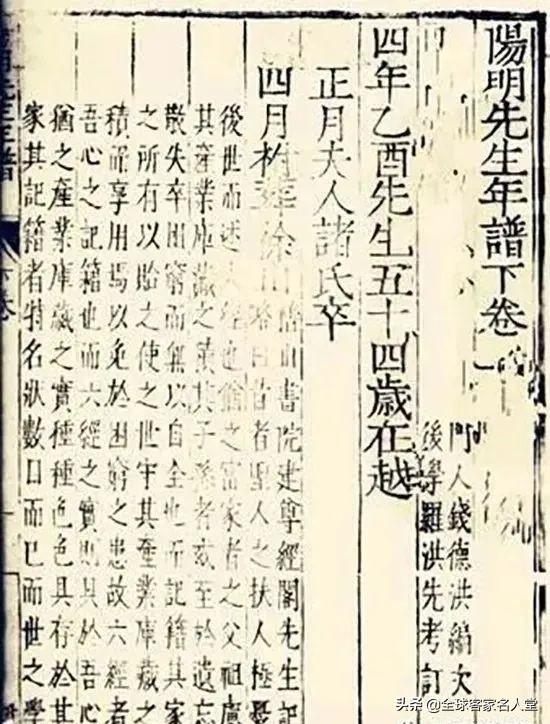 陽明先生年譜下卷
門人錢德洪編次
後學羅洪先考訂
四年乙酉先生五十四歲在越
正月夫人諸氏卒
四月祔葬徐山
書院建尊經閣先生記
曰昔者聖人之扶人極憂
後世而述六經也猶之富家者之父祖慮
其產業庫藏之積其子孫者或至於遺忘
散失卒困窮而無以自全也而記籍其家
之所有以貽之使之世守其產業庫藏之
積而享用焉以免於困窮之患故六經者
吾心之記籍也而六經之實則具於吾心
猶之產業庫藏之實種種色色具存於其
家其記籍者特名狀數目而已而世之學
頭条 @全球客家名人堂